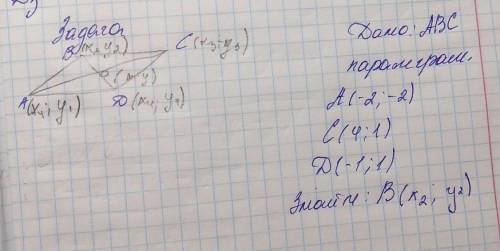 Задача
B(x₂ y₂)
C(x₃; y₃)
O(x; y)
A(x₁; y₁)
D(x₄; y₄)
Дано: ABC
параграм.
A(-2; -2)
C(4; 1)
D(-1; 1)
Знайти: B(x₂; y₂)